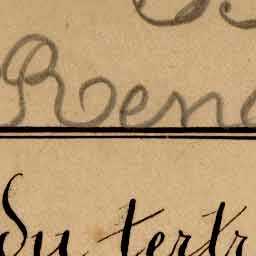 Rene
Du tertr